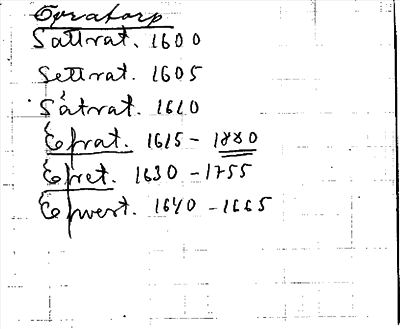 Epratorp
Sattrat. 1600
Settrat. 1605
Såtrat. 1610
Efrat. 1615 - 1880
Efret. 1630 - 1755
Efvert. 1640 - 1665